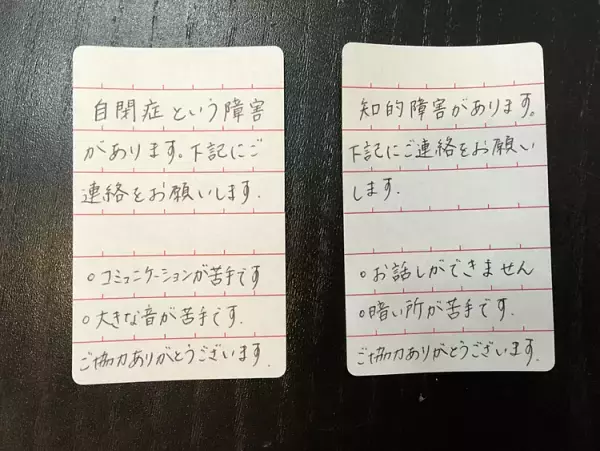 自閉症という障害
があります。下記にご
連絡をお願いします.
○コミュニケーションが苦手です
○大きな音が苦手です.
ご協力ありがとうございます.
知的障害があります。
下記にご連絡をお願い
します.
○お話しができません
○暗い所が苦手です.
ご協力ありがとうございます.